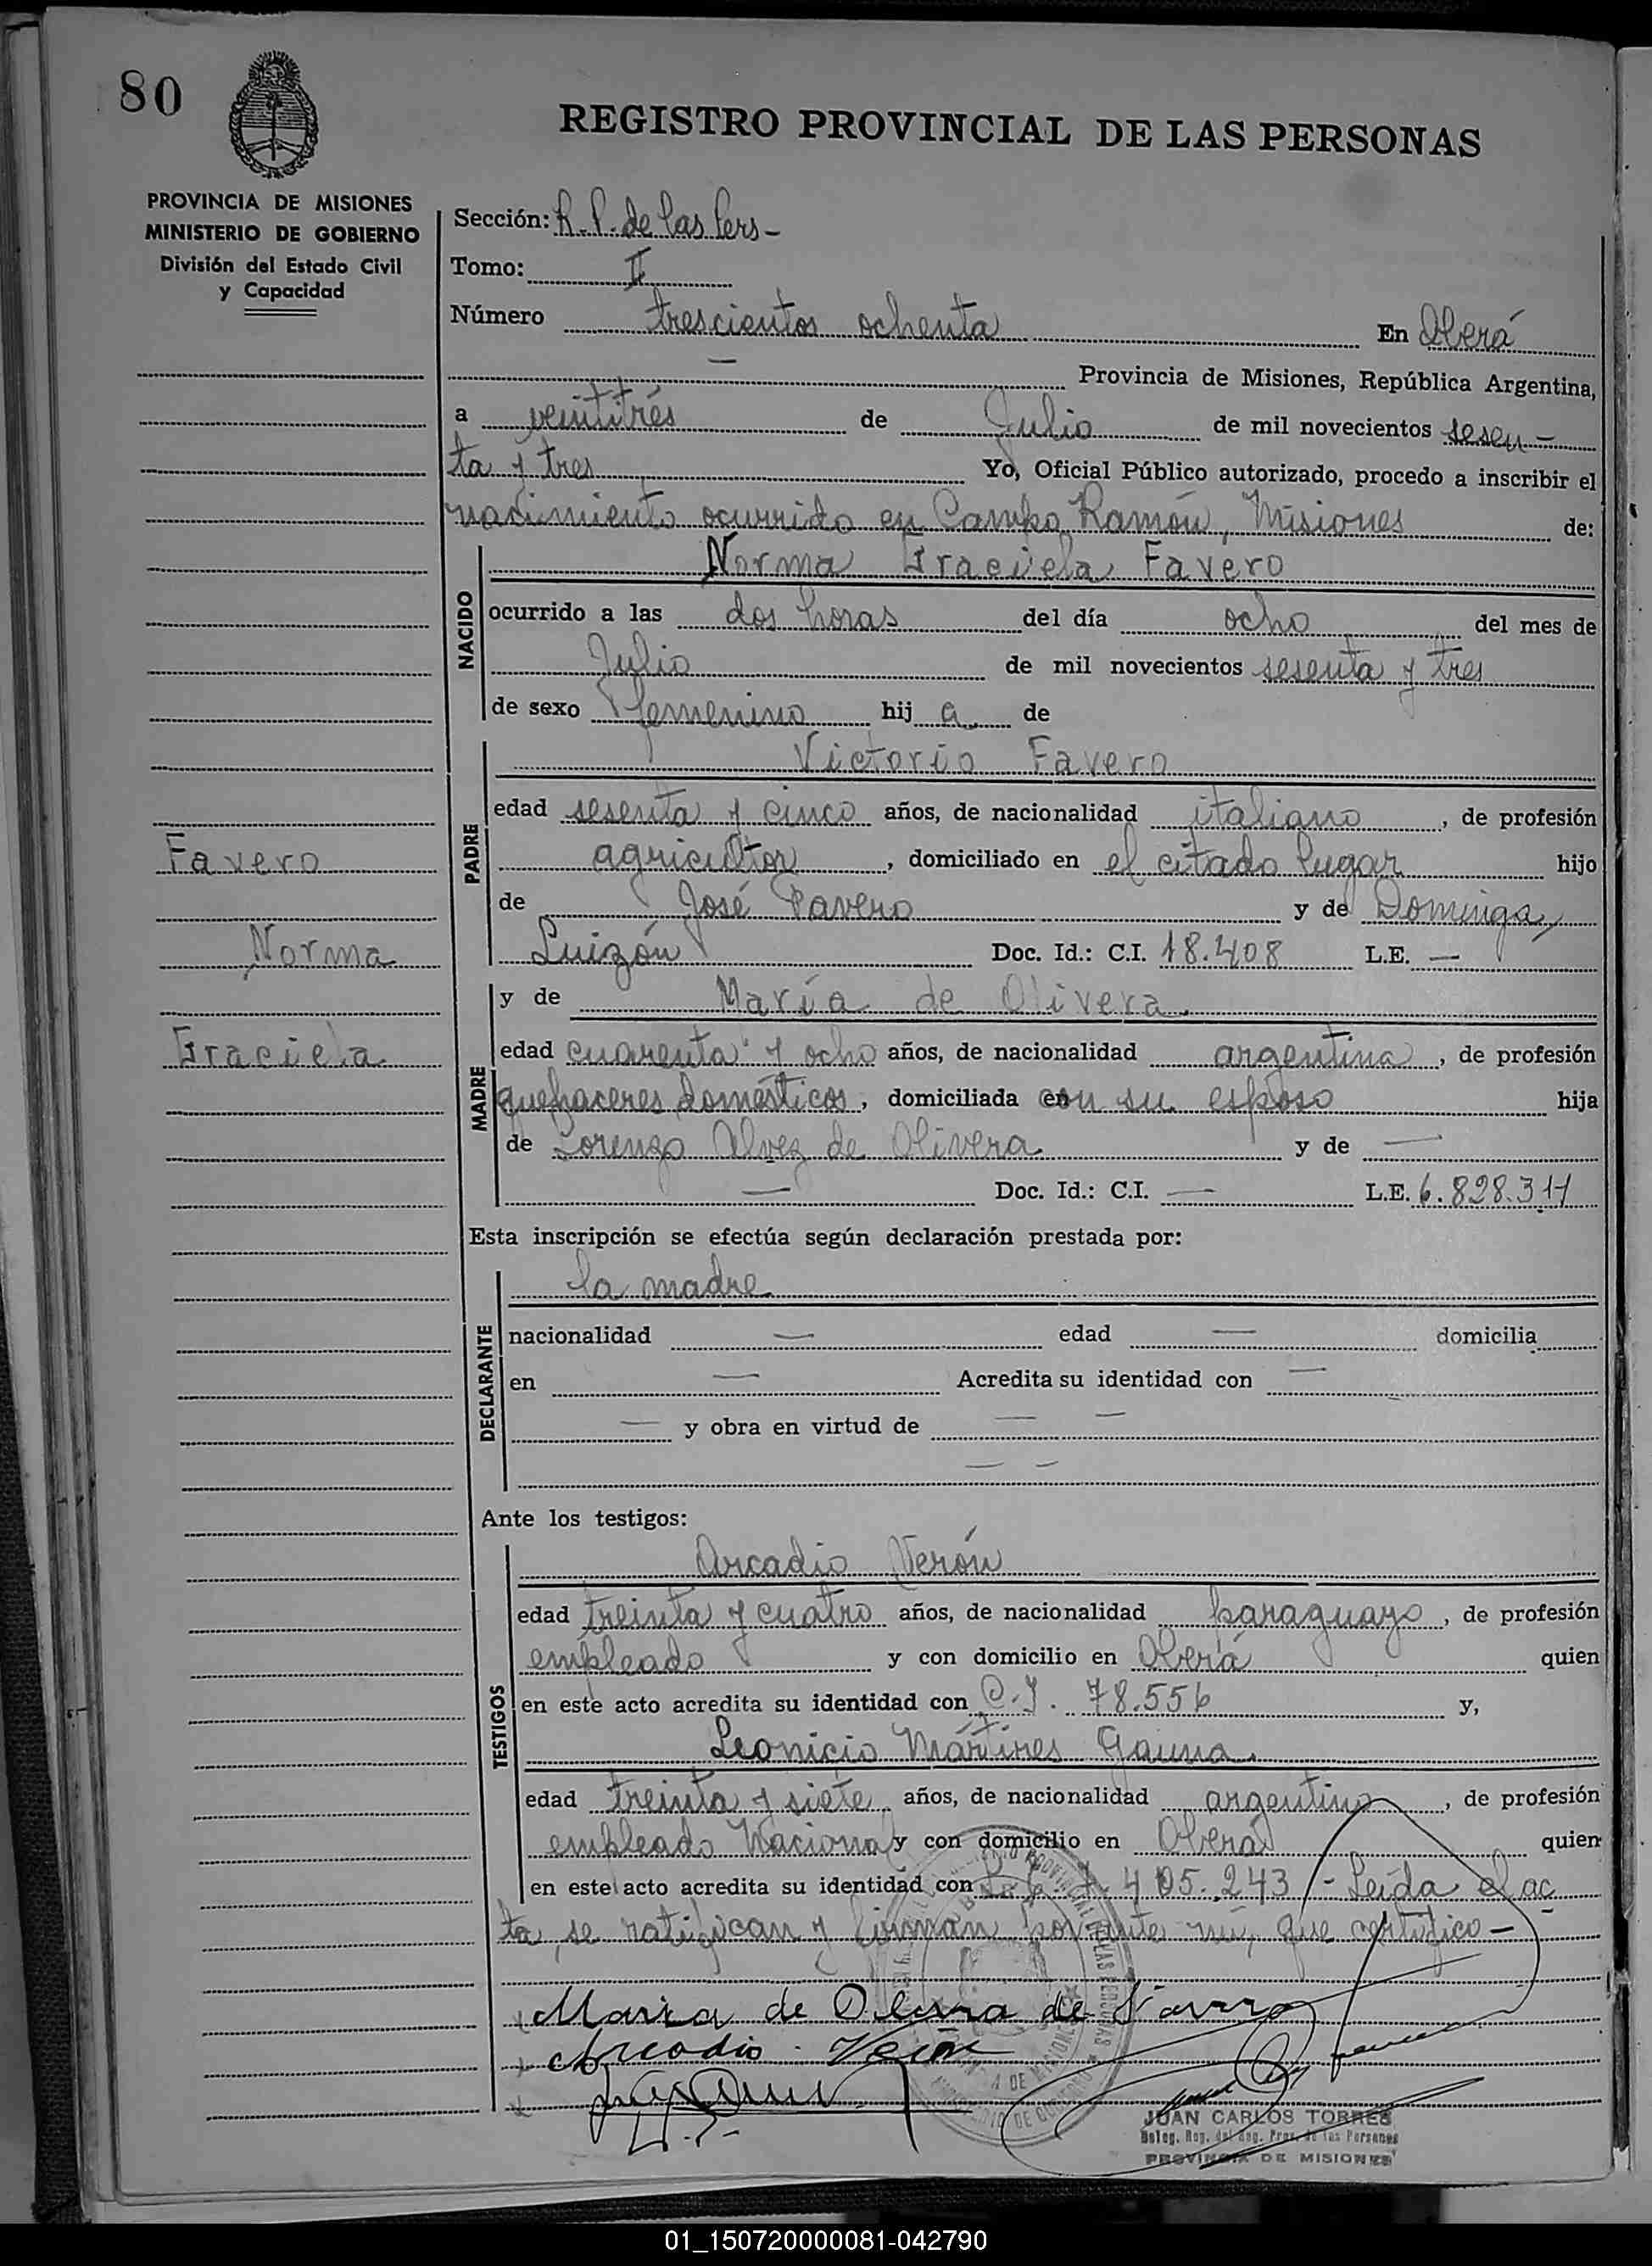 80
REGISTRO PROVINCIAL DE LAS PERSONAS
PROVINCIA DE MISIONES
MINISTERIO DE GOBIERNO
División del Estado Civil
y Capacidad
Sección: R. P. de las Pers-
Tomo: II
Número trescientos ochenta En Oberá
— Provincia de Misiones, República Argentina,
a veintitrés de Julio de mil novecientos sesen-
ta y tres Yo, Oficial Público autorizado, procedo a inscribir el
nacimiento ocurrido en Campo Ramón, Misiones de:
NACIDO
Norma Graciela Favero
ocurrido a las dos horas del día ocho del mes de
Julio de mil novecientos sesenta y tres
de sexo femenino hij a de
PADRE
Victorio Favero
edad sesenta y cinco años, de nacionalidad italiano, de profesión
agricultor, domiciliado en el citado lugar hijo
de José Favero y de Dominga
Luizón Doc. Id.: C.I. 18.408 L.E. —
Favero
Norma
Graciela
MADRE
y de María de Olivera
edad cuarenta y ocho años, de nacionalidad argentina, de profesión
quehaceres domésticos, domiciliada con su esposo hija
de Lorenzo Alvez de Olivera y de —
— Doc. Id.: C.I. — L.E. 6.828.311
Esta inscripción se efectúa según declaración prestada por:
DECLARANTE
la madre
nacionalidad — edad — domicilia
en — Acredita su identidad con —
— y obra en virtud de — —
— —
Ante los testigos:
TESTIGOS
Arcadio Verón
edad treinta y cuatro años, de nacionalidad paraguayo, de profesión
empleado y con domicilio en Oberá quien
en este acto acredita su identidad con C.I. 78.556 y,
Leonicio Mártires Gauna
edad treinta y siete años, de nacionalidad argentino, de profesión
empleado Nacional y con domicilio en Oberá quien
en este acto acredita su identidad con 405.243 - Leída el ac
ta, se ratifican y firman por ante mí, que certifico -
Maria de Olivera de Favero
Arcadio Verón
JUAN CARLOS TORRES
Deleg. Reg. del Reg. Prov. de las Personas
PROVINCIA DE MISIONES
01_150720000081-042790